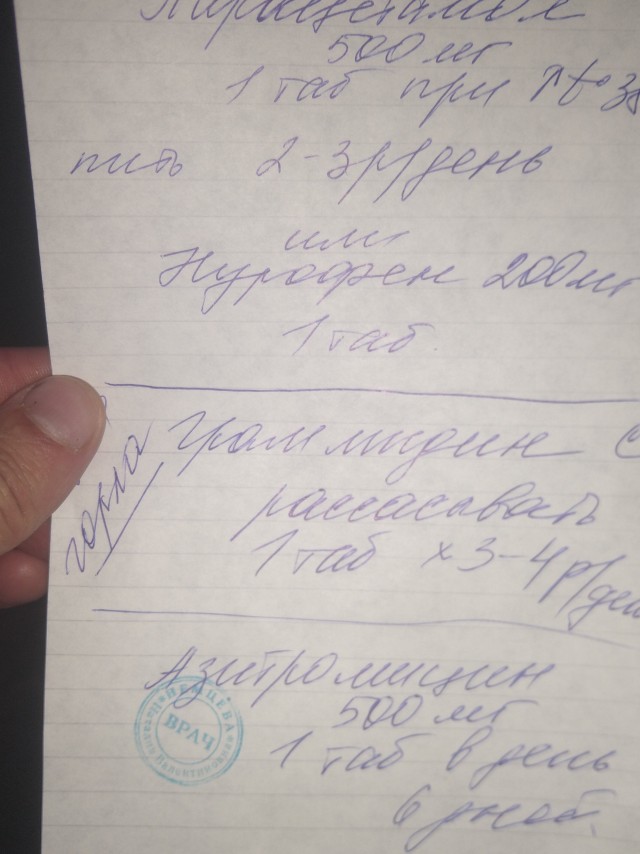 Парацетамол
500 мг
1 таб при ↑t° 38
пить 2-3 р/день
или
Нурофен 200мг
1 таб.
горла
Граммидин с
рассасывать
1 таб х 3-4 р/ден
Азитромицин
500 мг
1 таб в день
6 дней.
ВРАЧ